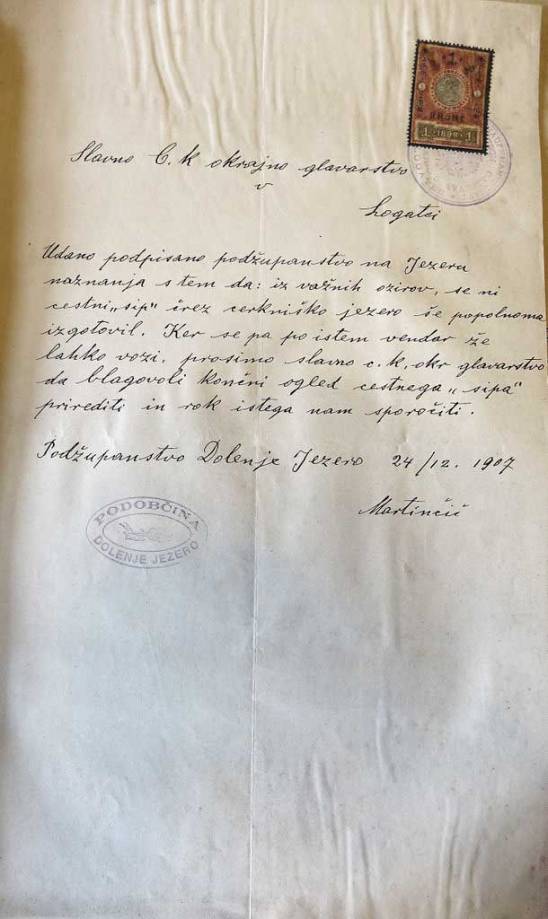 1
KRONE
1 1898 1
Slavno C. k okrajno glavarstvo
v
Logatci
Udano podpisano podžupanstvo na Jezeru
naznanja s tem da: iz važnih ozirov, se ni
cestni „sip“ črez cerkniško jezero še popolnoma
izgotovil. Ker se pa po istem vendar že
lahko vozi. prosimo slavno c. k. okr glavarstvo
da blagovoli končni ogled cestnega „sipa“
prirediti in rok istega nam sporočiti.
Podžupanstvo Dolenje Jezero 24/12. 1907
Martinčič
PODOBČINA
DOLENJE JEZERO